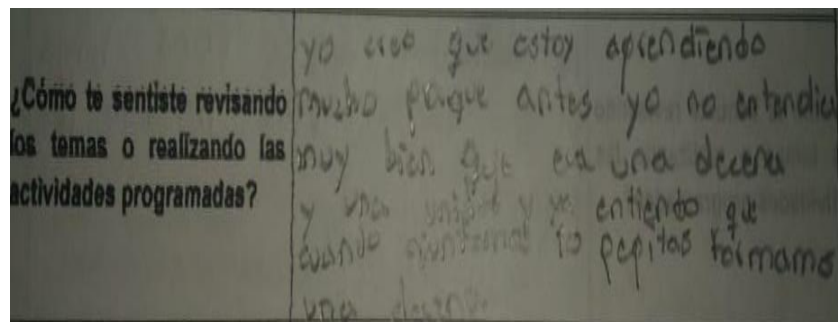 ¿Cómo te sentiste revisando
los temas o realizando las
actividades programadas?
yo creo que estoy aprendiendo
mucho porque antes yo no entendia
muy bien que era una decena
y una unidad y ya entiendo que
cuando juntamos 10 pepitas formamos
una decena.